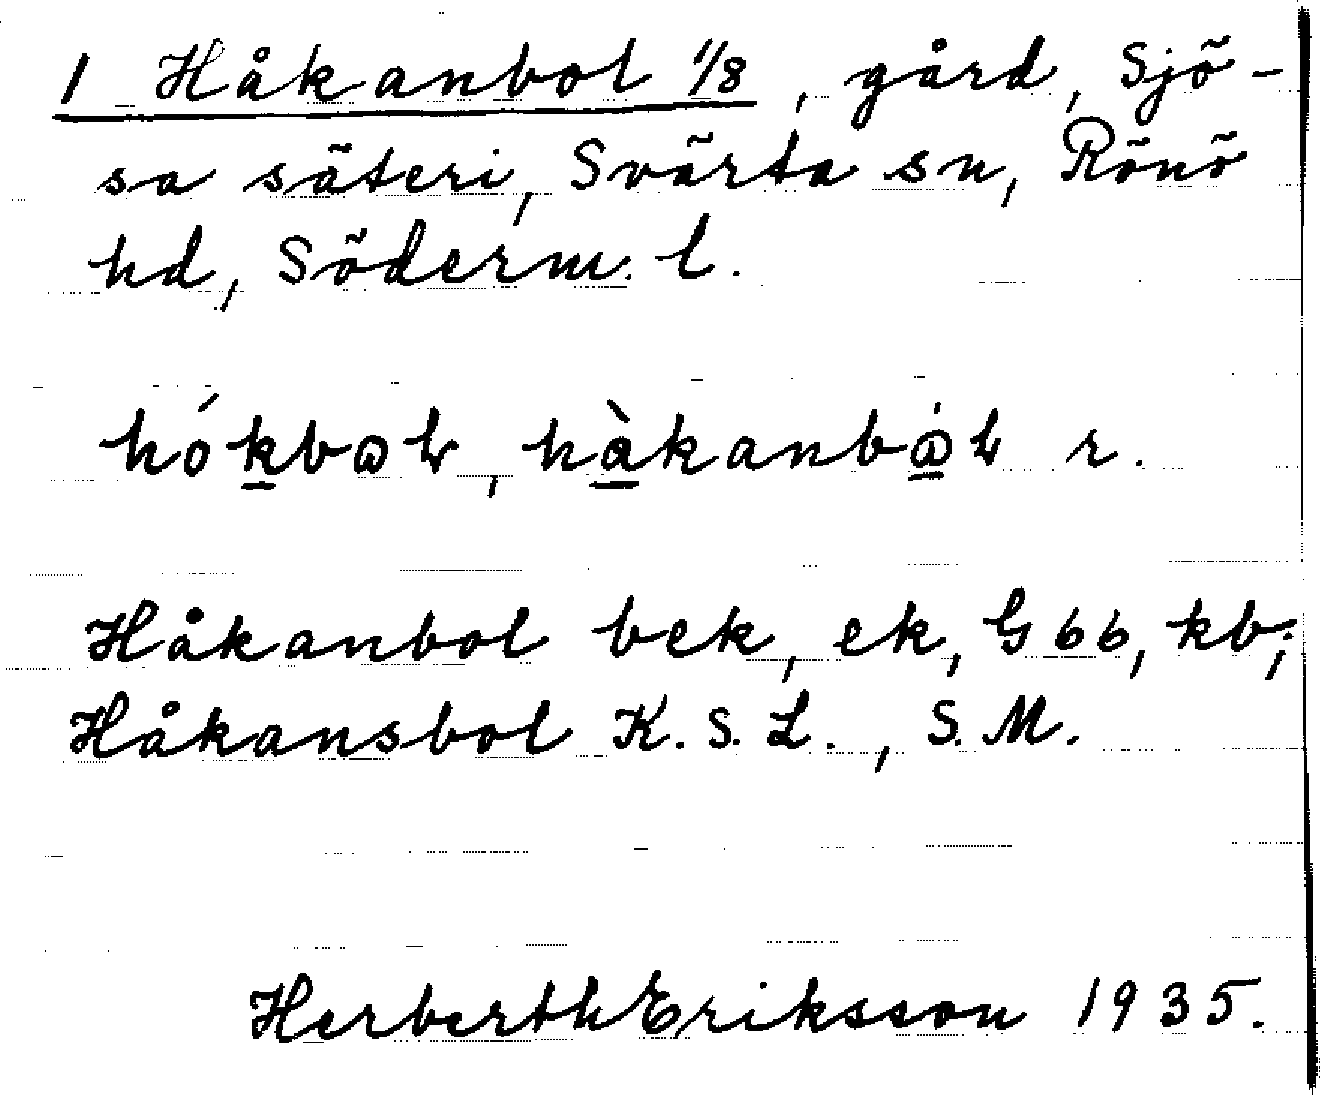 1 Håkanbol 1/8, gård, Sjö-
sa säteri, Svärta sn, Rönö
hd, Söderm. l.
hó̱kbɷɫ, hà̱kanbɷ̱́ɫ r.
Håkanbol bek, ek, G66, kb;
Håkansbol K.S.L., S.M.
Herberth Eriksson 1935.